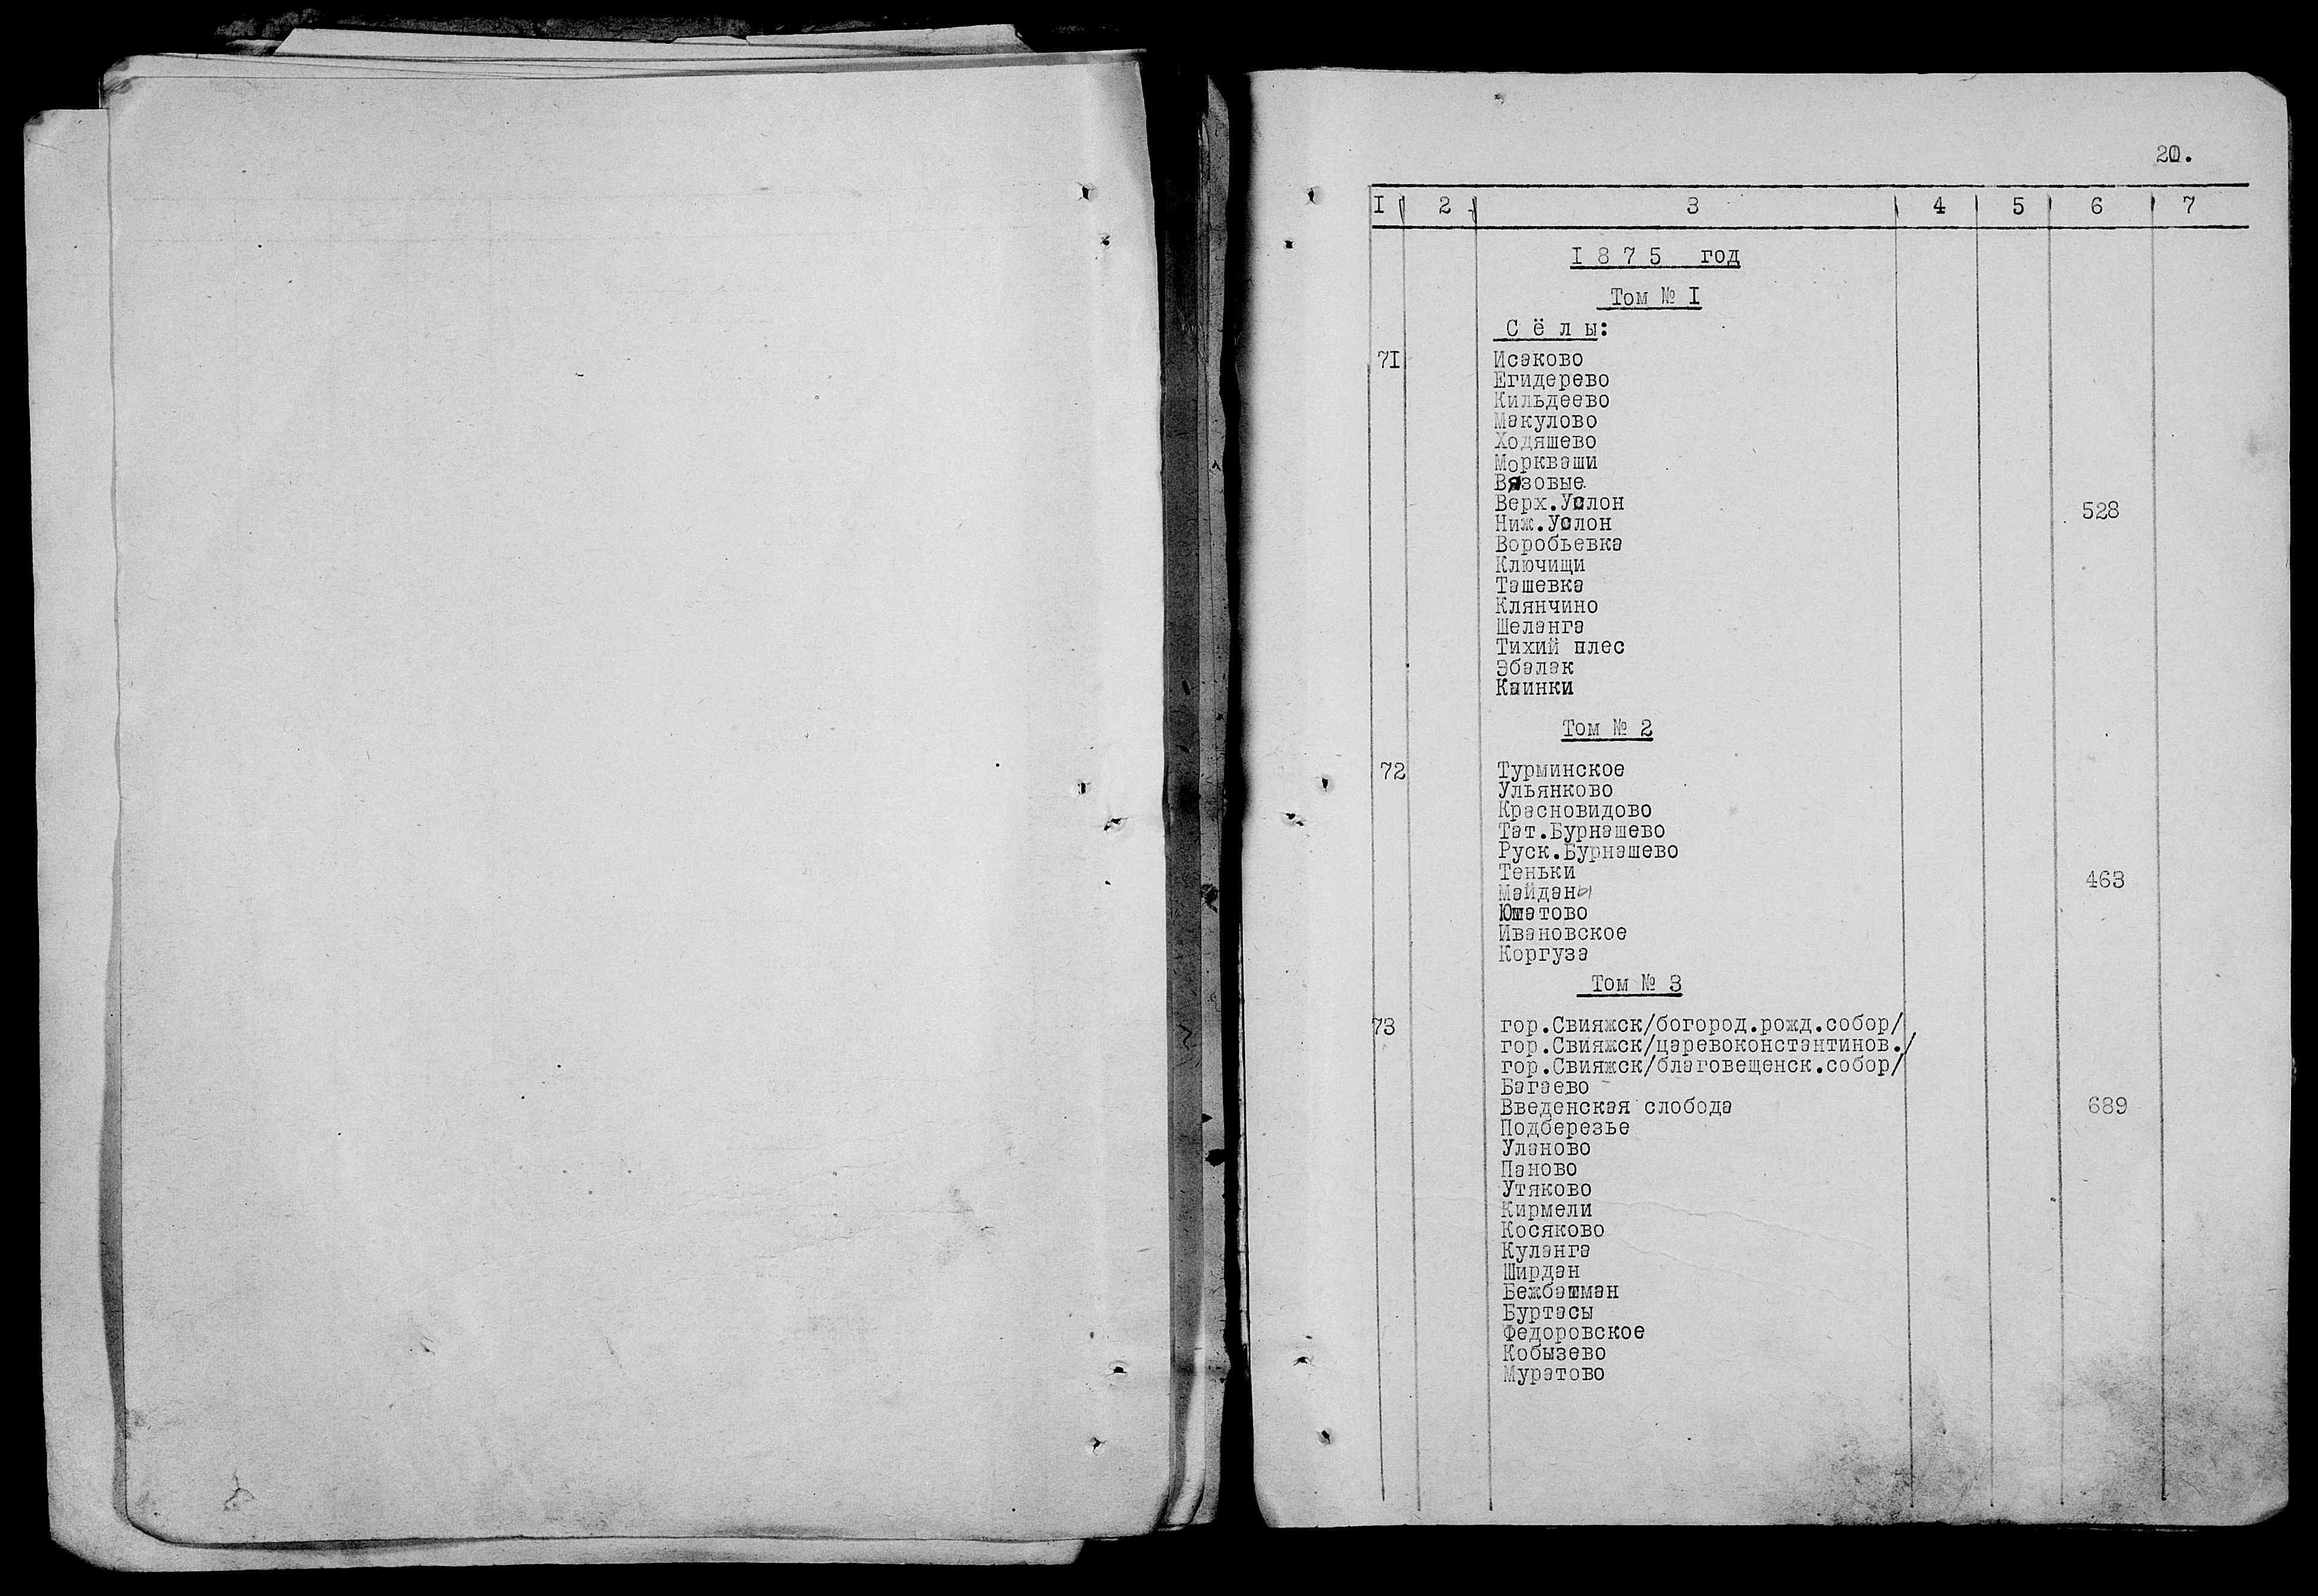 20.
I 2 3 4 5 6 7
I 8 7 5 год
Том № I
С ё л ы:
7I Исаково
Егидерево
Кильдеево
Макулово
Ходяшево
Моркваши
Вязовые
Верх.Услон
528
Ниж.Услон
Воробьевка
Ключищи
Ташевка
Клянчино
Шеланга
Тихий плес
Эбалак
Каинки
Том № 2
72 Турминское
Ульянково
Красновидово
Тат.Бурнашево
Руск.Бурнашево
Теньки
463
Майданы
Юматово
Ивановское
Коргуза
Том № 3
73 гор.Свияжск/богород.рожд.собор/
гор.Свияжск/царевоконстантинов./
гор.Свияжск/благовещенск.собор/
Багаево
Введенская слобода 689
Подберезье
Уланово
Паново
Утяково
Кирмели
Косяково
Куланга
Ширдан
Бежбатман
Буртасы
Федоровское
Кобызево
Муратово